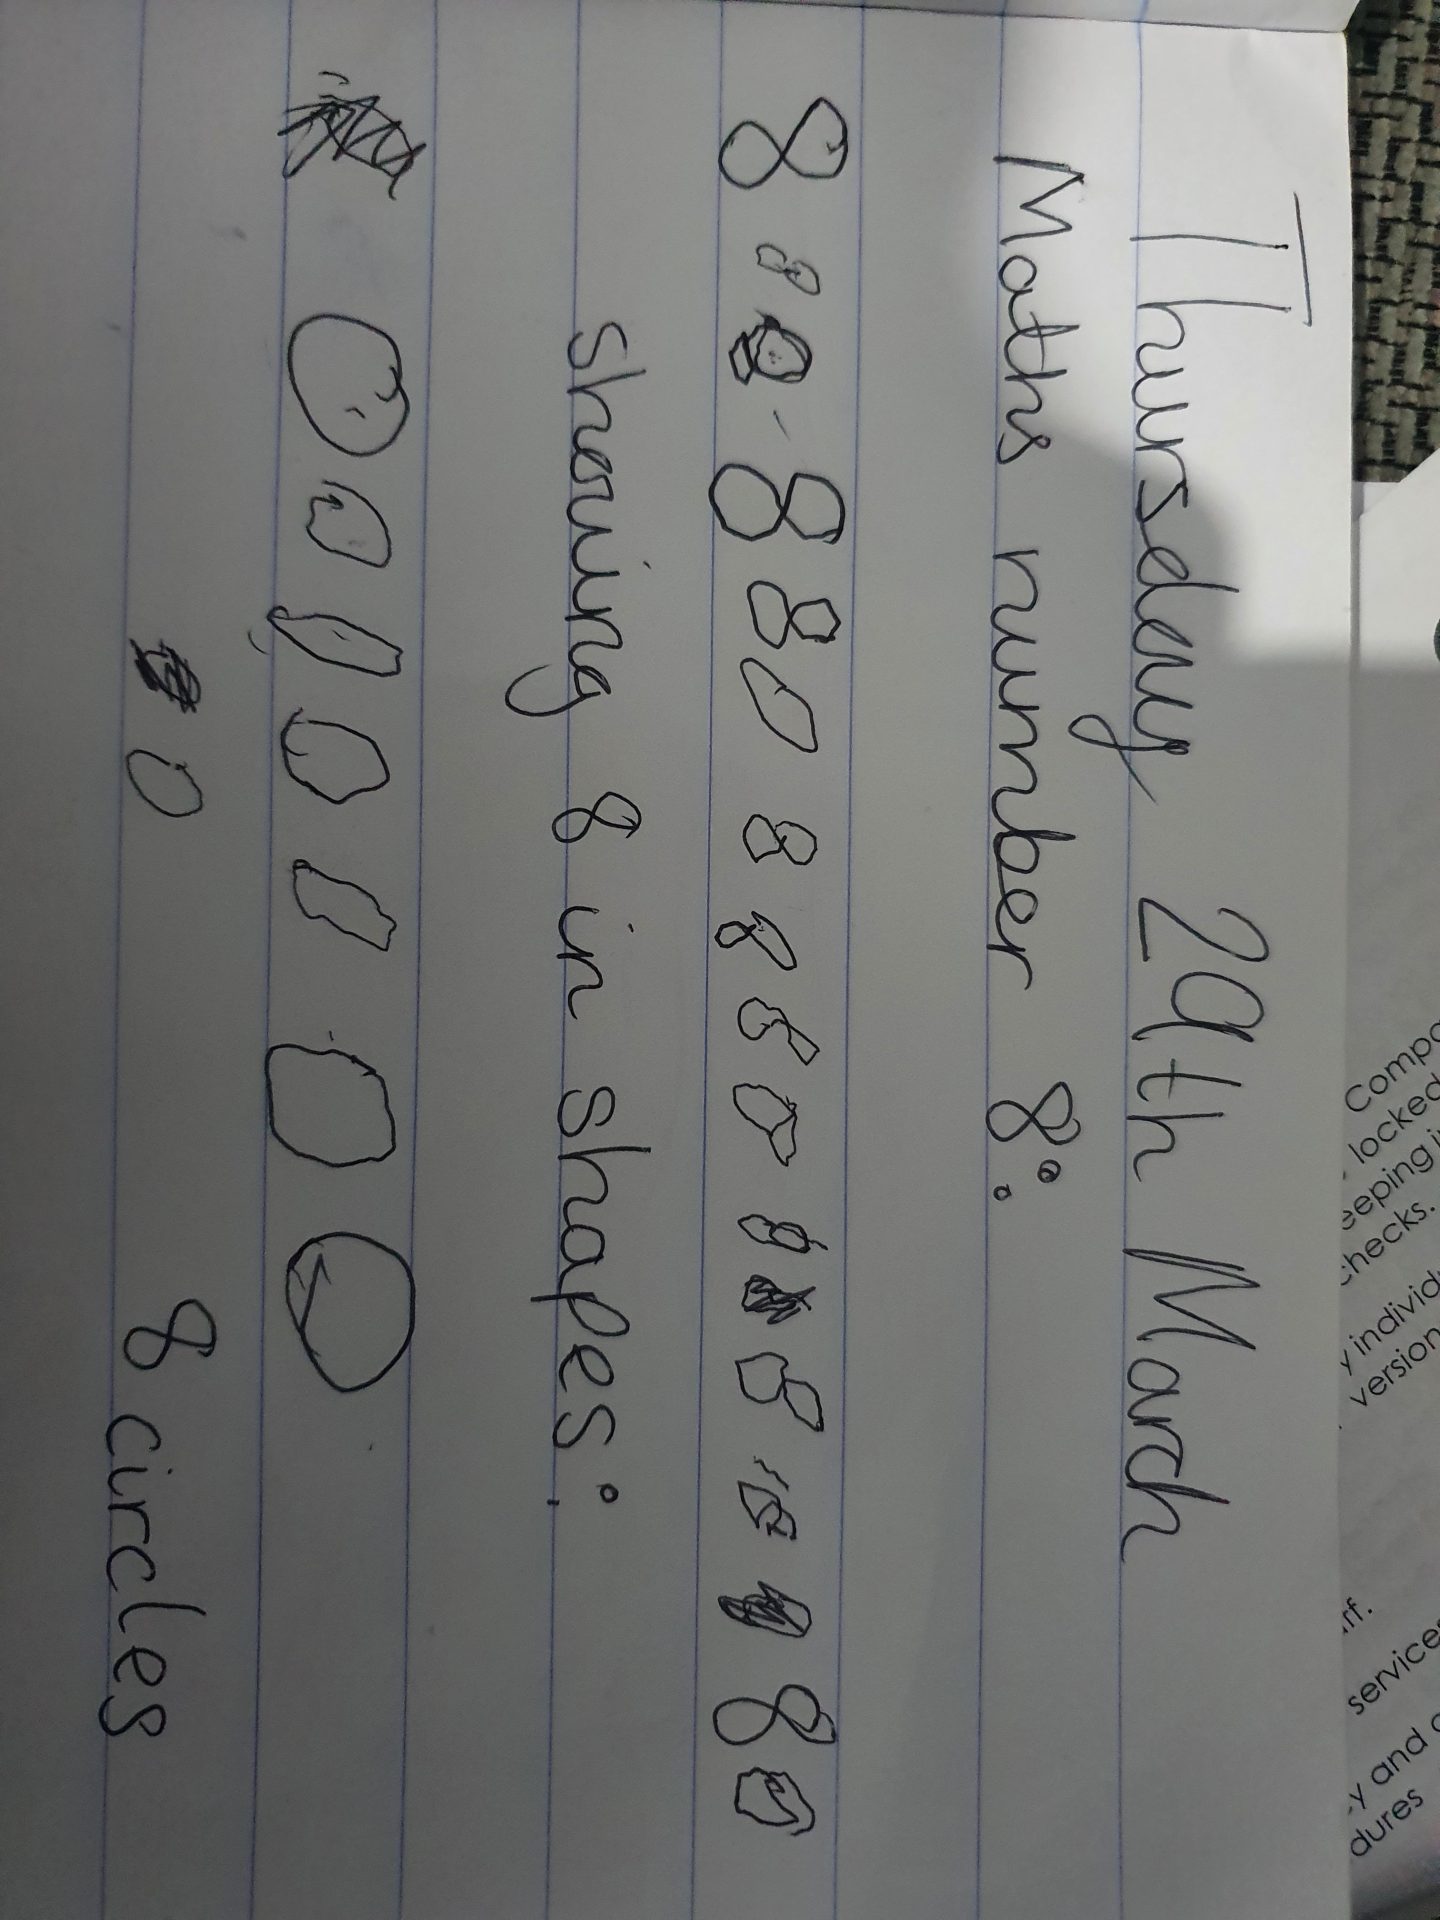 Thursday 29th March
Maths number 8:
8 8 8 8 8 8 8 8 8 8 8 8
showing 8 in shapes:
8 circles
Compa
locked
eeping i
checks.
y individ
version
rf.
service
y and
dures